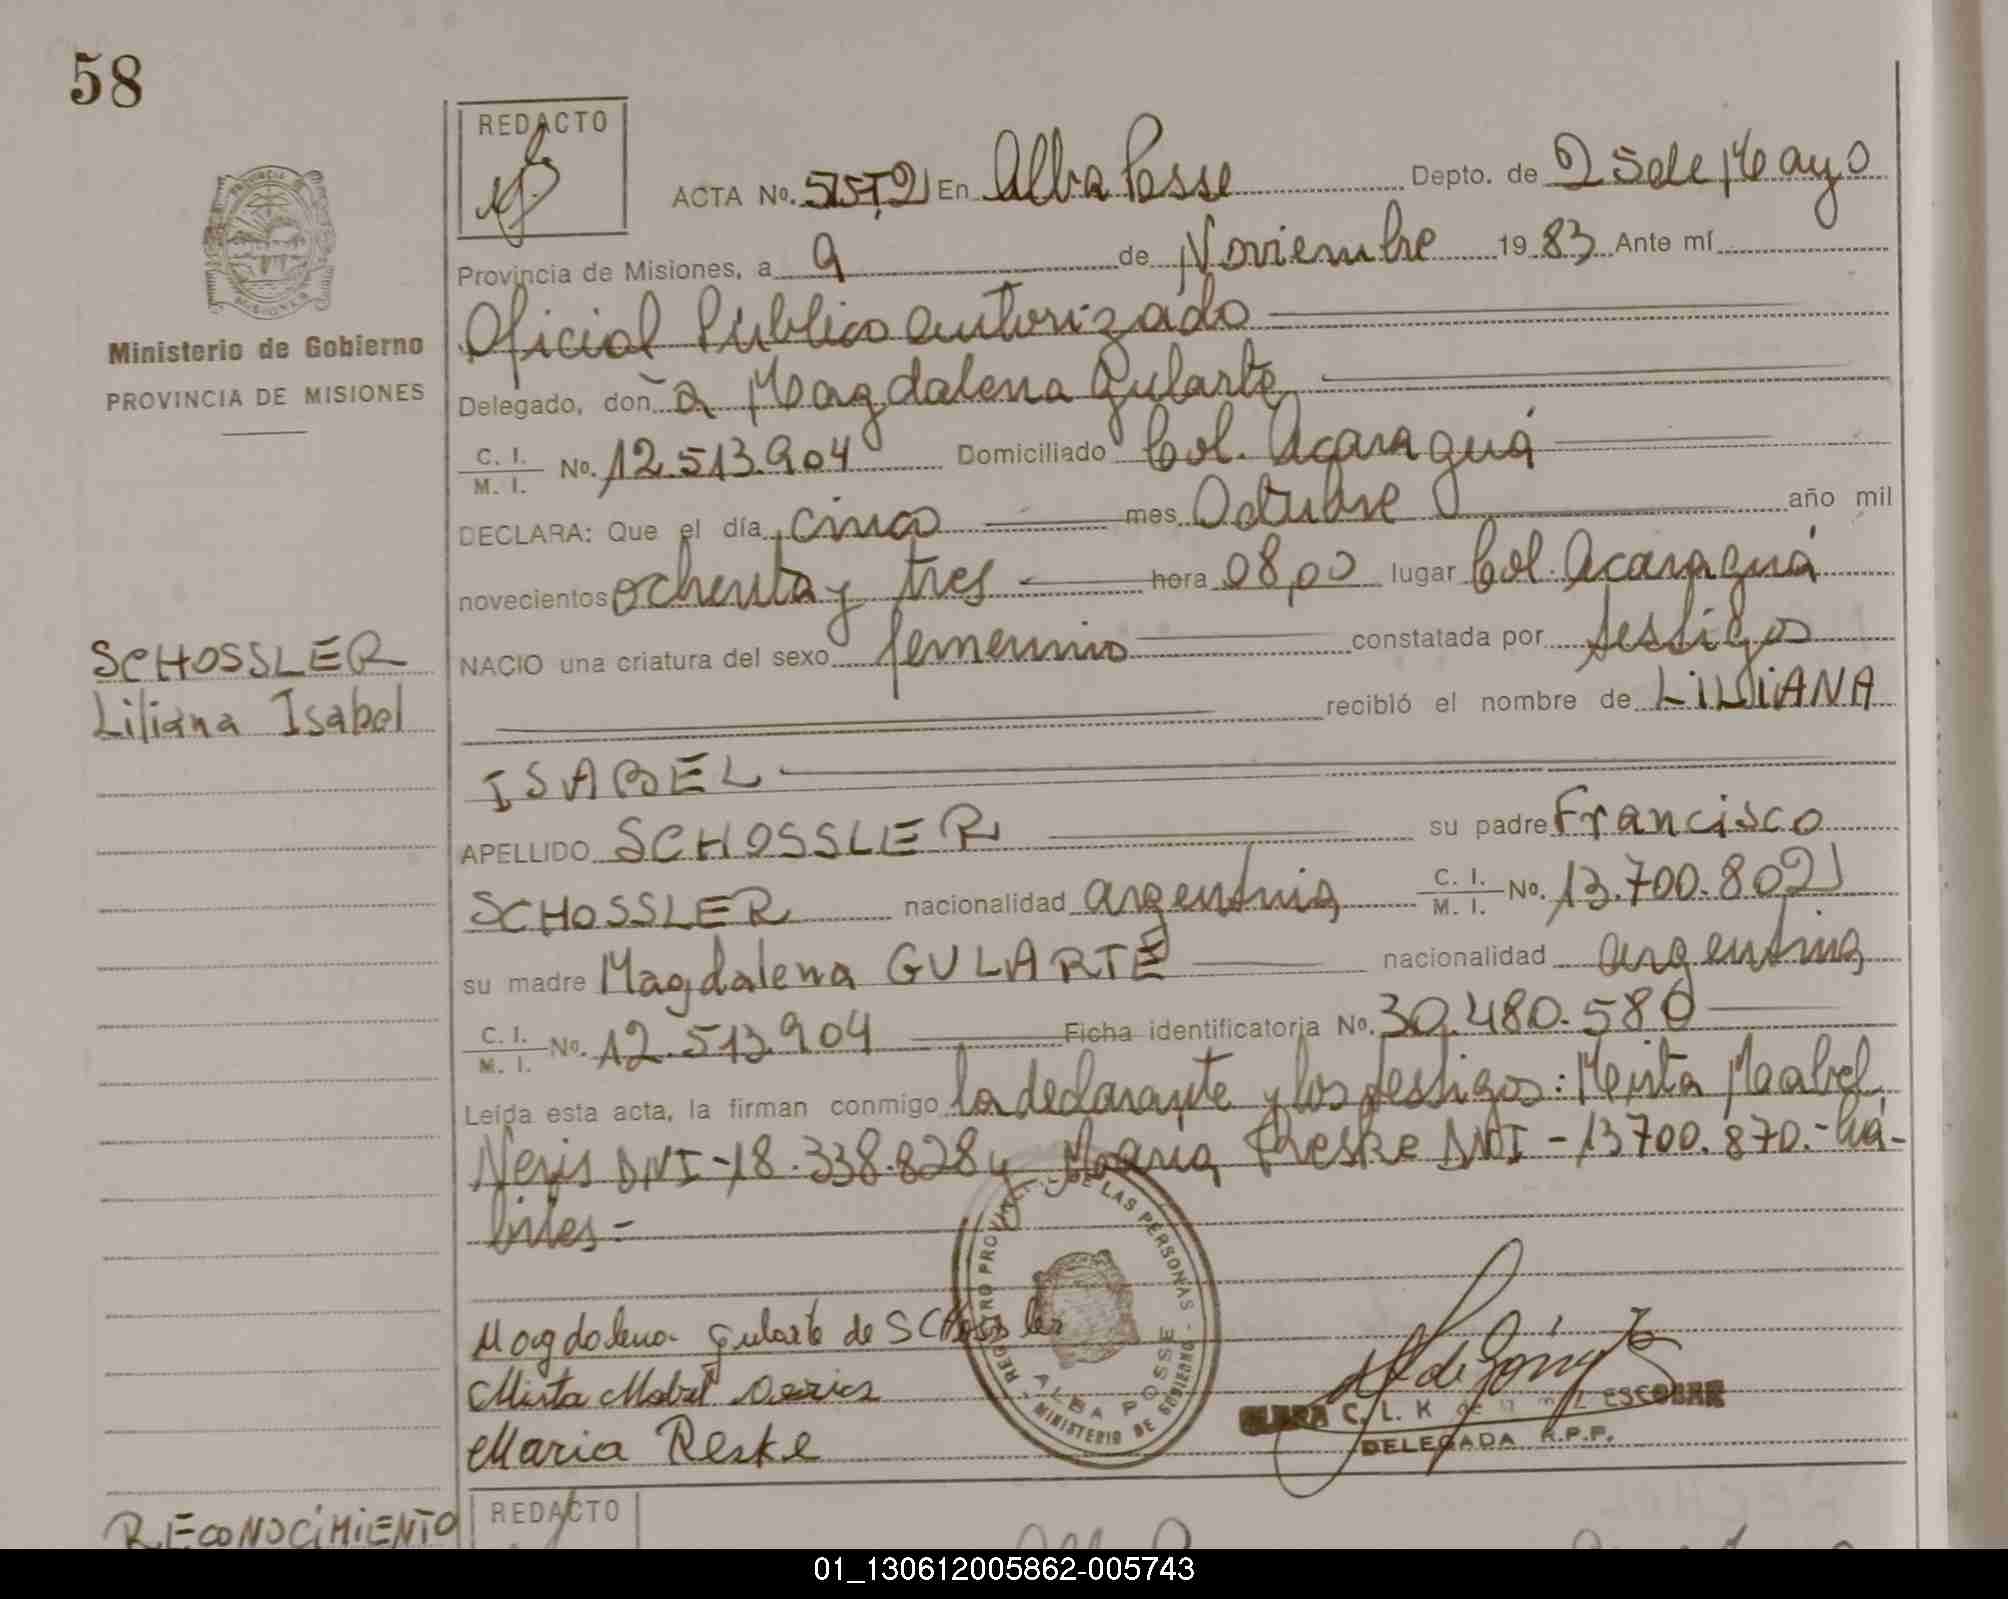 58
REDACTO
ACTA No. En Alba Posse Depto. de 25 de Mayo
Provincia de Misiones, a 9 de Noviembre 1983 Ante mí
Oficial Público autorizado
Ministerio de Gobierno
PROVINCIA DE MISIONES
Delegado, doñ a Magdalena Gularte
C. I. / M. I. No. 12.513.904 Domiciliado Col. Acaraguá
DECLARA: Que el día cinco mes Octubre año mil
novecientos ochenta y tres hora 08,00 lugar Col. Acaraguá
SCHOSSLER
Liliana Isabel
NACIO una criatura del sexo femenino constatada por testigos
recibió el nombre de LILIANA
ISABEL
APELLIDO SCHOSSLER su padre Francisco
SCHOSSLER nacionalidad argentina C. I. / M. I. No. 13.700.802
su madre Magdalena GULARTE nacionalidad argentina
C. I. / M. I. No. 12.513.904 Ficha identificatoria No. 30.480.586
Leída esta acta, la firman conmigo la declarante y los testigos: Mirta Maabel
Neris DNI-18.338.828 y Maria Reske DNI-13700.870.- há-
biles-
Magdalena Gularte de SCHossler
Mirta Mabel Neris
Maria Reske
REGISTRO PROVINCIAL DE LAS PERSONAS
ALBA POSSE
MINISTERIO DE GOBIERNO
C. L. K de ESCOBAR
DELEGADA R.P.P.
RECONOCIMIENTO
REDACTO
01_130612005862-005743